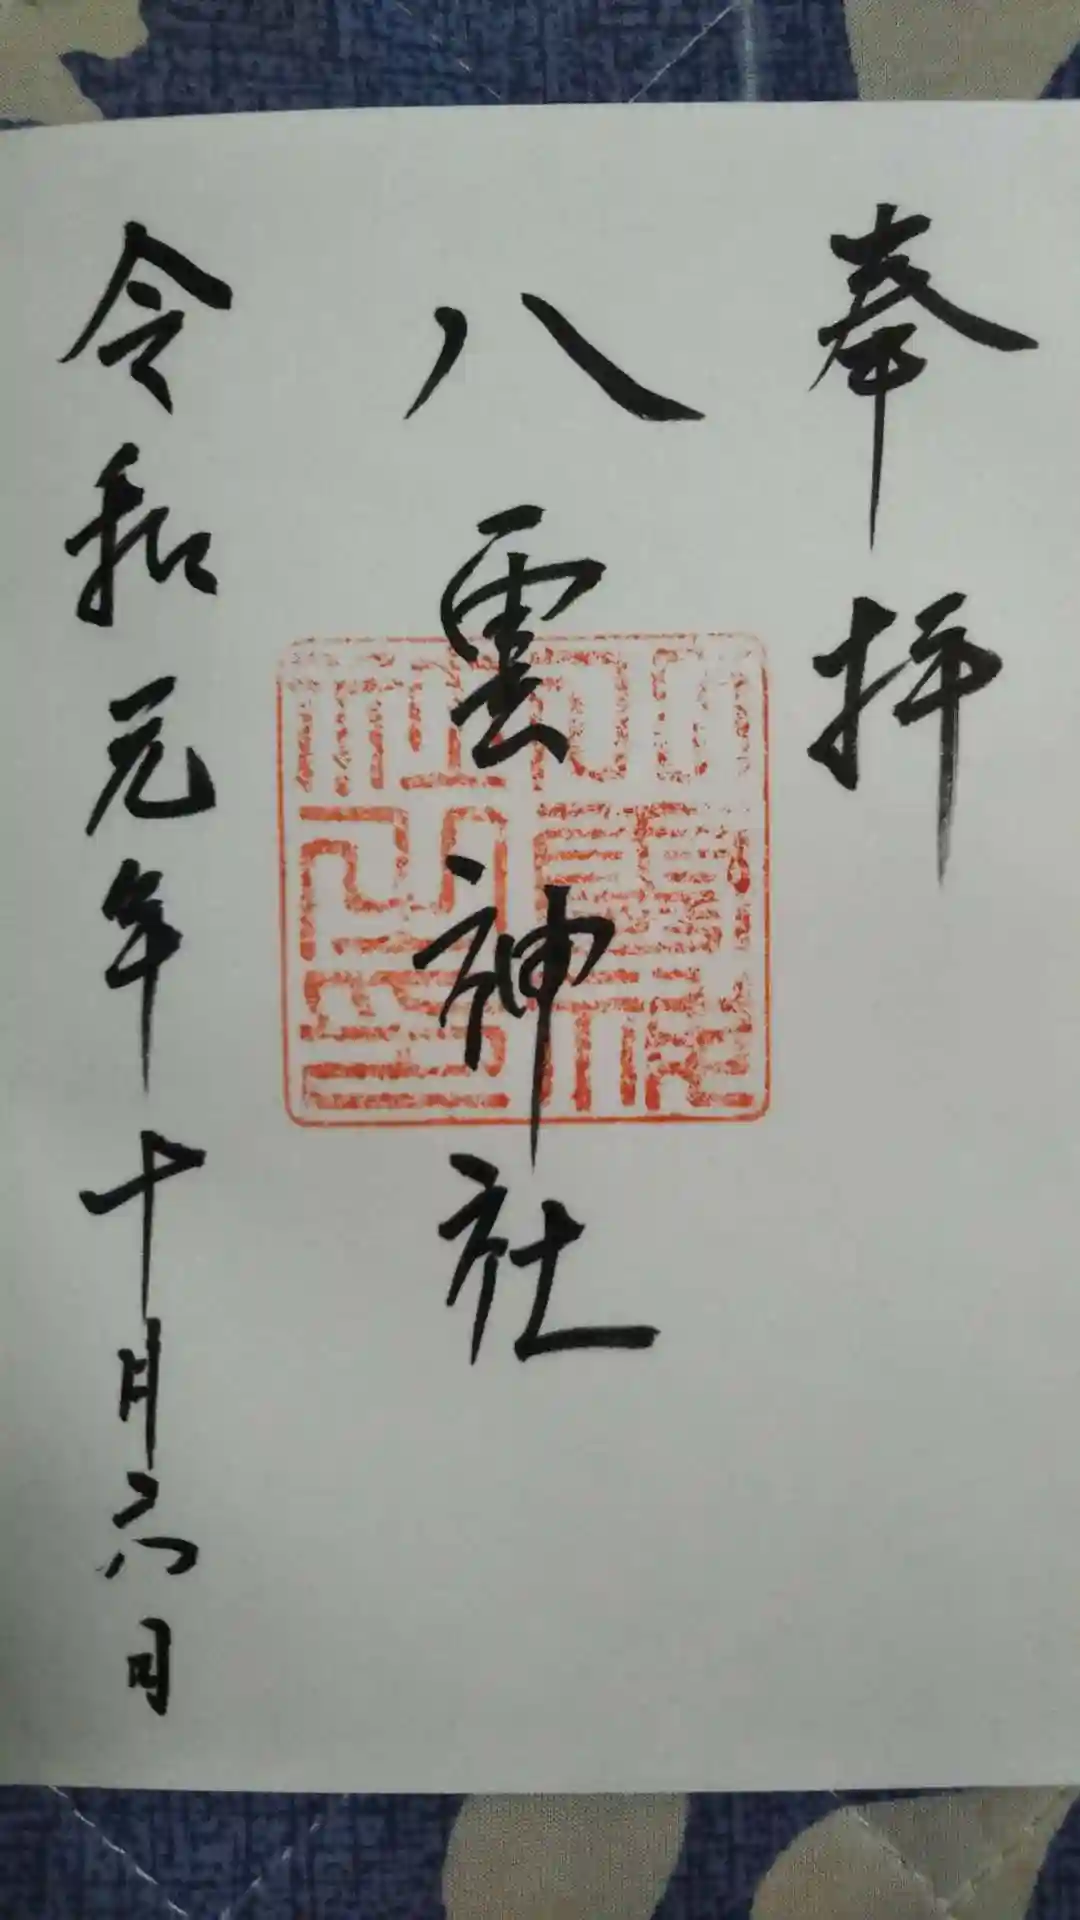 奉拝
八雲神社
令和元年十月六日